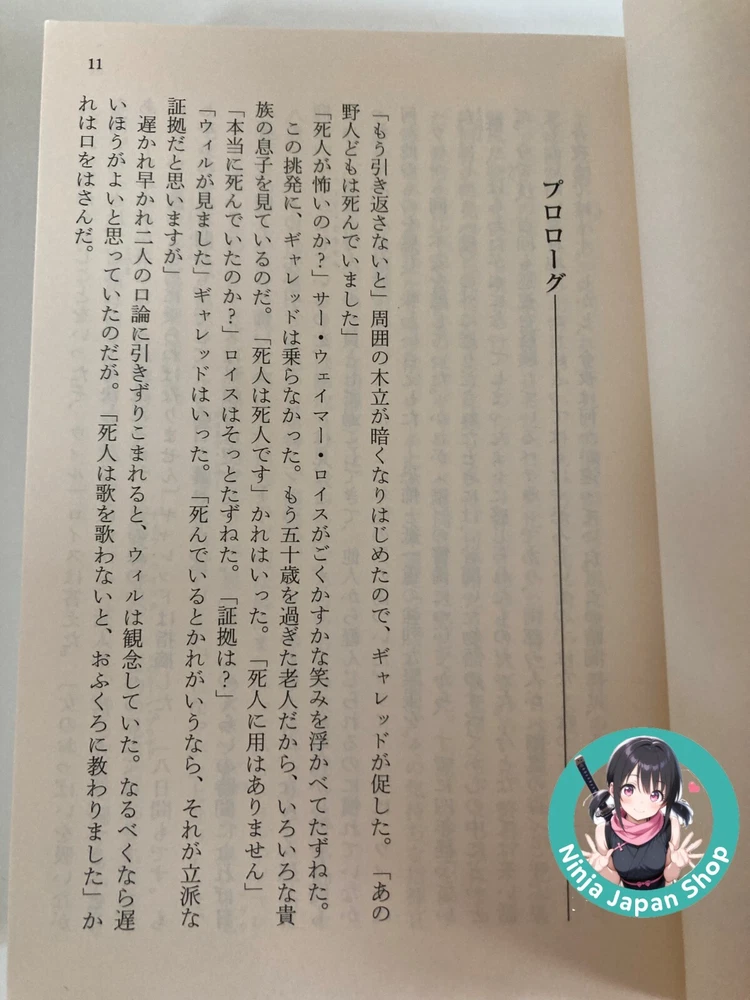 11
プロローグ
「もう引き返さないと」周囲の木立が暗くなりはじめたので、ギャレッドが促した。「あの
野人どもは死んでいました」
「死人が怖いのか?」サー・ウェイマー・ロイスがごくかすかな笑みを浮かべてたずねた。
この挑発に、ギャレッドは乗らなかった。もう五十歳を過ぎた老人だから、いろいろな貴
族の息子を見ているのだ。「死人は死人です」かれはいった。「死人に用はありません」
「本当に死んでいたのか?」ロイスはそっとたずねた。「証拠は?」
「ウィルが見ました」ギャレッドはいった。「死んでいるとかれがいうなら、それが立派な
証拠だと思いますが」
遅かれ早かれ二人の口論に引きずりこまれると、ウィルは観念していた。なるべくなら遅
いほうがよいと思っていたのだが。「死人は歌を歌わないと、おふくろに教わりました」か
れは口をはさんだ。
Ninja Japan Shop